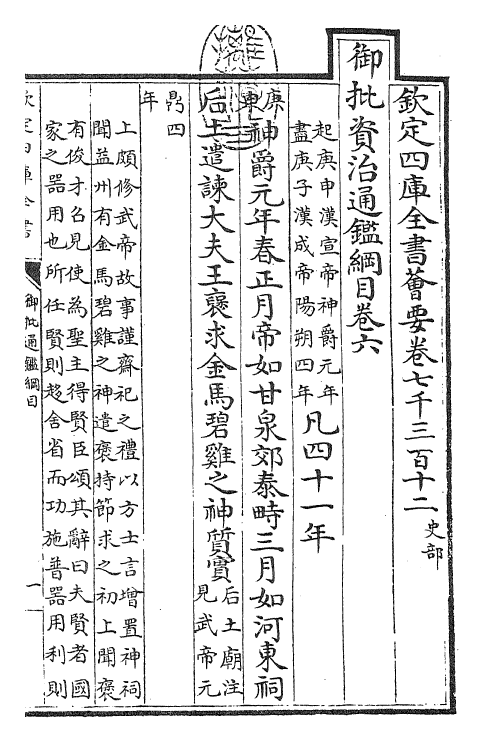 欽定四庫全書薈要卷七千三百十二 史部
御批資治通鑑綱目卷六
起庚申漢宣帝神爵元年
盡庚子漢成帝陽朔四年
凡四十一年
庚
神爵元年春正月帝如甘泉郊泰畤三月如河東祠
后土遣諫大夫王襃求金馬碧雞之神質實
后土廟注
見武帝元
鼎四
年
上頗修武帝故事謹齋祀之禮以方士言增置神祠
聞益州有金馬碧雞之神遣襃持節求之初上聞襃
有俊才召見使為聖主得賢臣頌其辭曰夫賢者國
家之器用也所任賢則趨舍省而功施普器用利則
欽定四庫全書
御批通鑑綱目
一